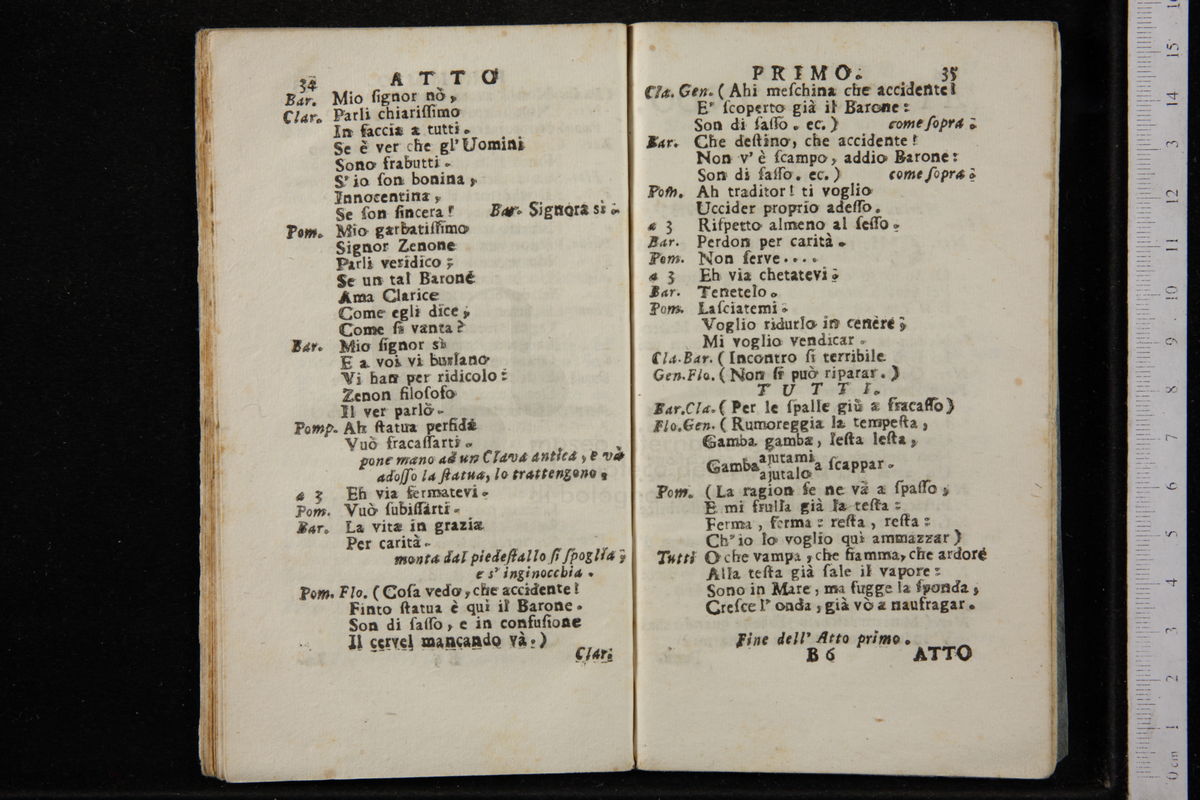 34 ATTO
Bar. Mio ſignor nò,
Clar. Parli chiariſſimo
In faccia a tutti.
Se è ver che gl'Uomini
Sono frabutti.
S'io ſon bonina,
Innocentina,
Se ſon ſincera! Bar. Signora sì.
Pom. Mio garbatiſſimo
Signor Zenone
Parli veridico;
Se un tal Barone
Ama Clarice
Come egli dice,
Come ſi vanta?
Bar. Mio ſignor sì
E a voi vi burlano
Vi han per ridicolo:
Zenon filoſofo
Il ver parlò.
Pomp. Ah ſtatua perfida
Vuò fracaſſarti.
pone mano ad un Clava antica, e và
adoſſo la ſtatua, lo trattengono.
a 3 Eh via fermatevi.
Pom. Vuò ſubiſſarti.
Bar. La vita in grazia
Per carità.
monta dal piedeſtallo ſi ſpoglia,
e s'inginocchia.
Pom. Flo. (Coſa vedo, che accidente!
Finto ſtatua è qui il Barone.
Son di ſaſſo, e in confuſione
Il cervel mancando và.)
Clar.
PRIMO. 35
Cla. Gen. (Ahi meſchina che accidente!
E' ſcoperto già il Barone:
Son di ſaſſo. ec.) come ſopra.
Bar. Che deſtino, che accidente!
Non v'è ſcampo, addio Barone:
Son di ſaſſo. ec.) come ſopra.
Pom. Ah traditor! ti voglio
Uccider proprio adeſſo.
a 3 Riſpetto almeno al ſeſſo.
Bar. Perdon per carità.
Pom. Non ſerve....
a 3 Eh via chetatevi.
Bar. Tenetelo.
Pom. Laſciatemi.
Voglio ridurlo in cenere,
Mi voglio vendicar.
Cla. Bar. (Incontro ſi terribile
Gen. Flo. (Non ſi può riparar.)
TUTTI.
Bar. Cla. (Per le ſpalle giù a fracaſſo)
Flo. Gen. (Rumoreggia la tempeſta,
Gamba gamba, leſta leſta,
Gamba ajutami
ajutalo a ſcappar.
Pom. (La ragion ſe ne và a ſpaſſo,
E mi frulla già la teſta:
Ferma, ferma: reſta, reſta:
Ch'io lo voglio quì ammazzar)
Tutti O che vampa, che fiamma, che ardore
Alla teſta già ſale il vapore:
Sono in Mare, ma fugge la ſponda,
Creſce l'onda, già vò a naufragar.
Fine dell' Atto primo.
B 6 ATTO